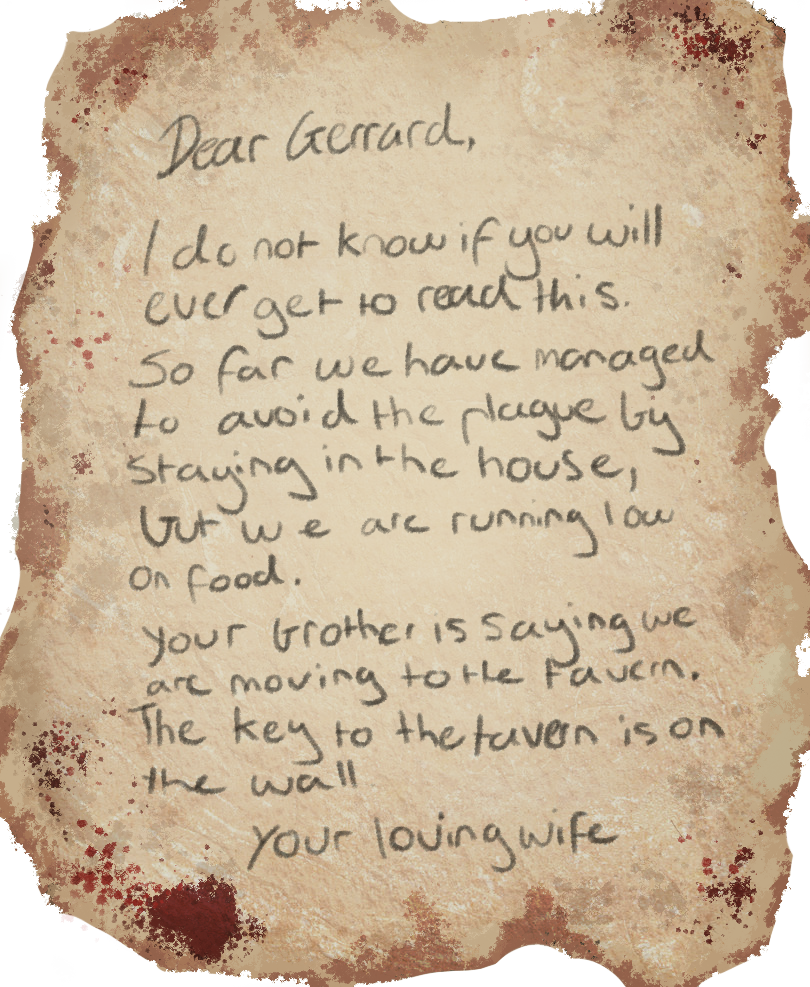 Dear Gerrard,
I do not know if you will
ever get to read this.
So far we have managed
to avoid the plague by
staying in the house,
but we are running low
on food.
your brother is saying we
are moving to the tavern.
The key to the tavern is on
the wall
your loving wife